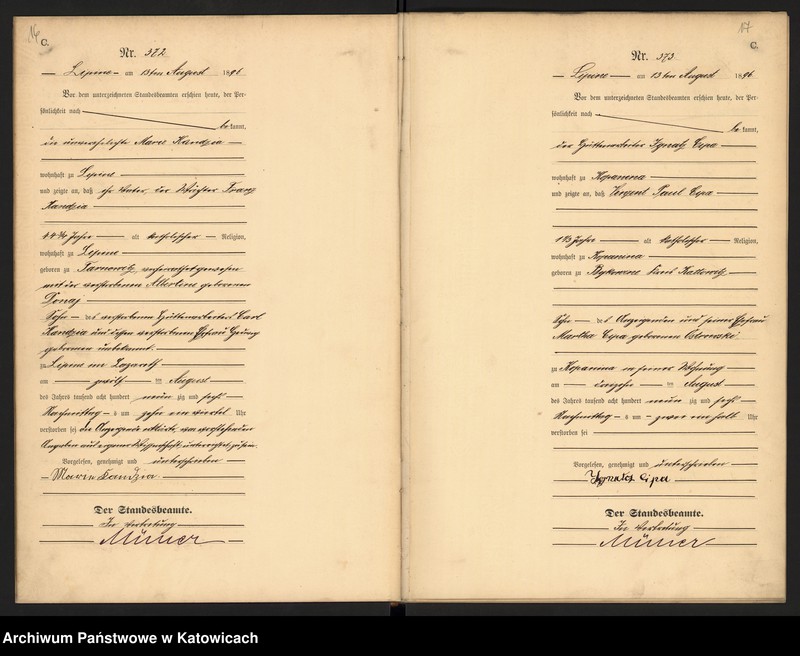 16
C.
Nr. 372
Lipine am 13ten August 1896
Vor dem unterzeichneten Standesbeamten erschien heute, der Per-
sönlichkeit nach
bekannt,
die unverehelichte Marie Kandzia
wohnhaft zu Lipine
und zeigte an, daß ihr Vater, der Wächter Franz
Kandzia
44 ¾ Jahre alt katholischer Religion,
wohnhaft zu Lipine
geboren zu Tarnowitz, verheirathet gewesen
mit der verstorbenen Albertine geborenen
Sohn des verstorbenen Hüttenarbeiters Carl
Kandzia und dessen verstorbenen Ehefrau
geborenen unbekannt.
zu Lipine im Lazareth
am zwölf ten August
des Jahres tausend acht hundert neun zig und sechs
Nachmittag s um zehn ein viertel Uhr
verstorben sei
Vorgelesen, genehmigt und unterschrieben
Marie Kandzia
Der Standesbeamte.
In Vertretung
Müller
17
C.
Nr. 373
Lipine am 13ten August 1896
Vor dem unterzeichneten Standesbeamten erschien heute, der Per-
sönlichkeit nach
bekannt,
der Hüttenarbeiter Ignatz Cipa
wohnhaft zu Kopanina
und zeigte an, daß Vincent Paul Cipa
Jahre alt katholischer Religion,
wohnhaft zu Kopanina
geboren zu Kreis Kattowitz
Sohn des Anzeigenden und seiner Ehefrau
Martha Cipa geborenen
zu Kopanina in seiner Wohnung
am dreizehn ten August
des Jahres tausend acht hundert neun zig und sechs
Nachmittag s um zwei ein halb Uhr
verstorben sei
Vorgelesen, genehmigt und unterschrieben
Ignatz Cipa
Der Standesbeamte.
In Vertretung
Müller
Archiwum Państwowe w Katowicach